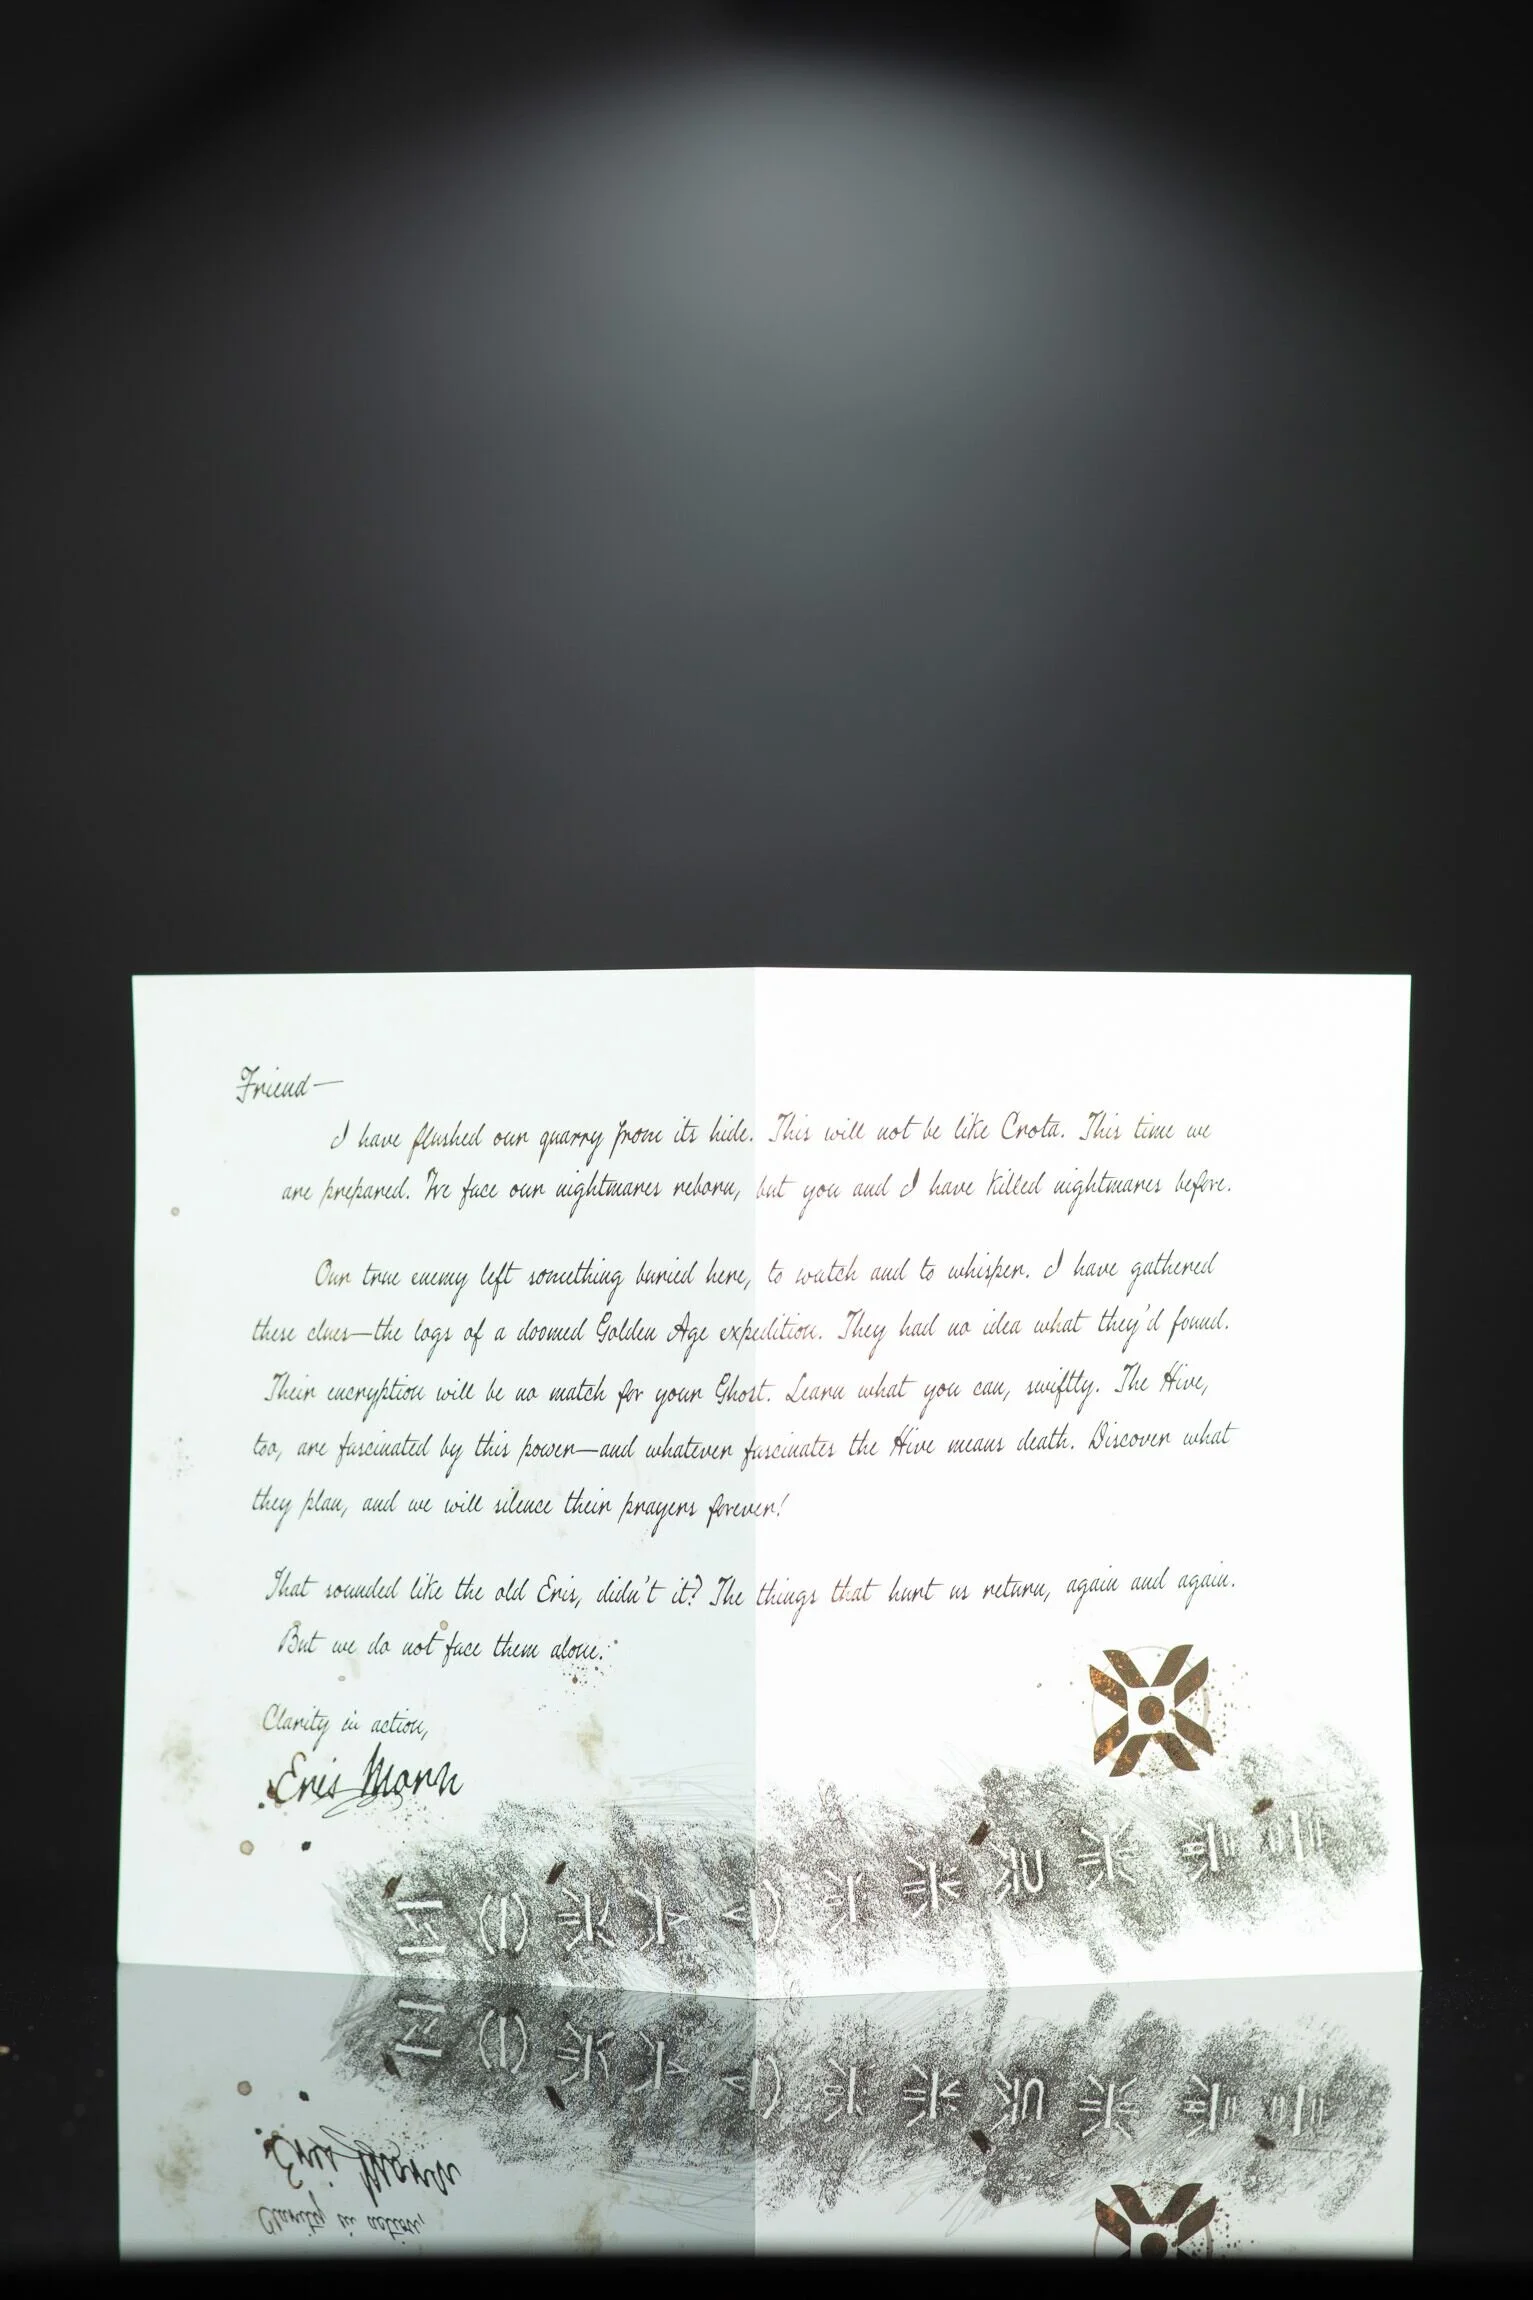 Friend—
I have flushed our quarry from its hide. This will not be like Crota. This time we
are prepared. We face our nightmares reborn, but you and I have killed nightmares before.
Our true enemy left something buried here, to watch and to whisper. I have gathered
these clues—the logs of a doomed Golden Age expedition. They had no idea what they'd found.
Their encryption will be no match for your Ghost. Learn what you can, swiftly. The Hive,
too, are fascinated by this power—and whatever fascinates the Hive means death. Discover what
they plan, and we will silence their prayers forever!
That sounded like the old Eris, didn't it? The things that hurt us return, again and again.
But we do not face them alone.
Clarity in action,
Eris Morn